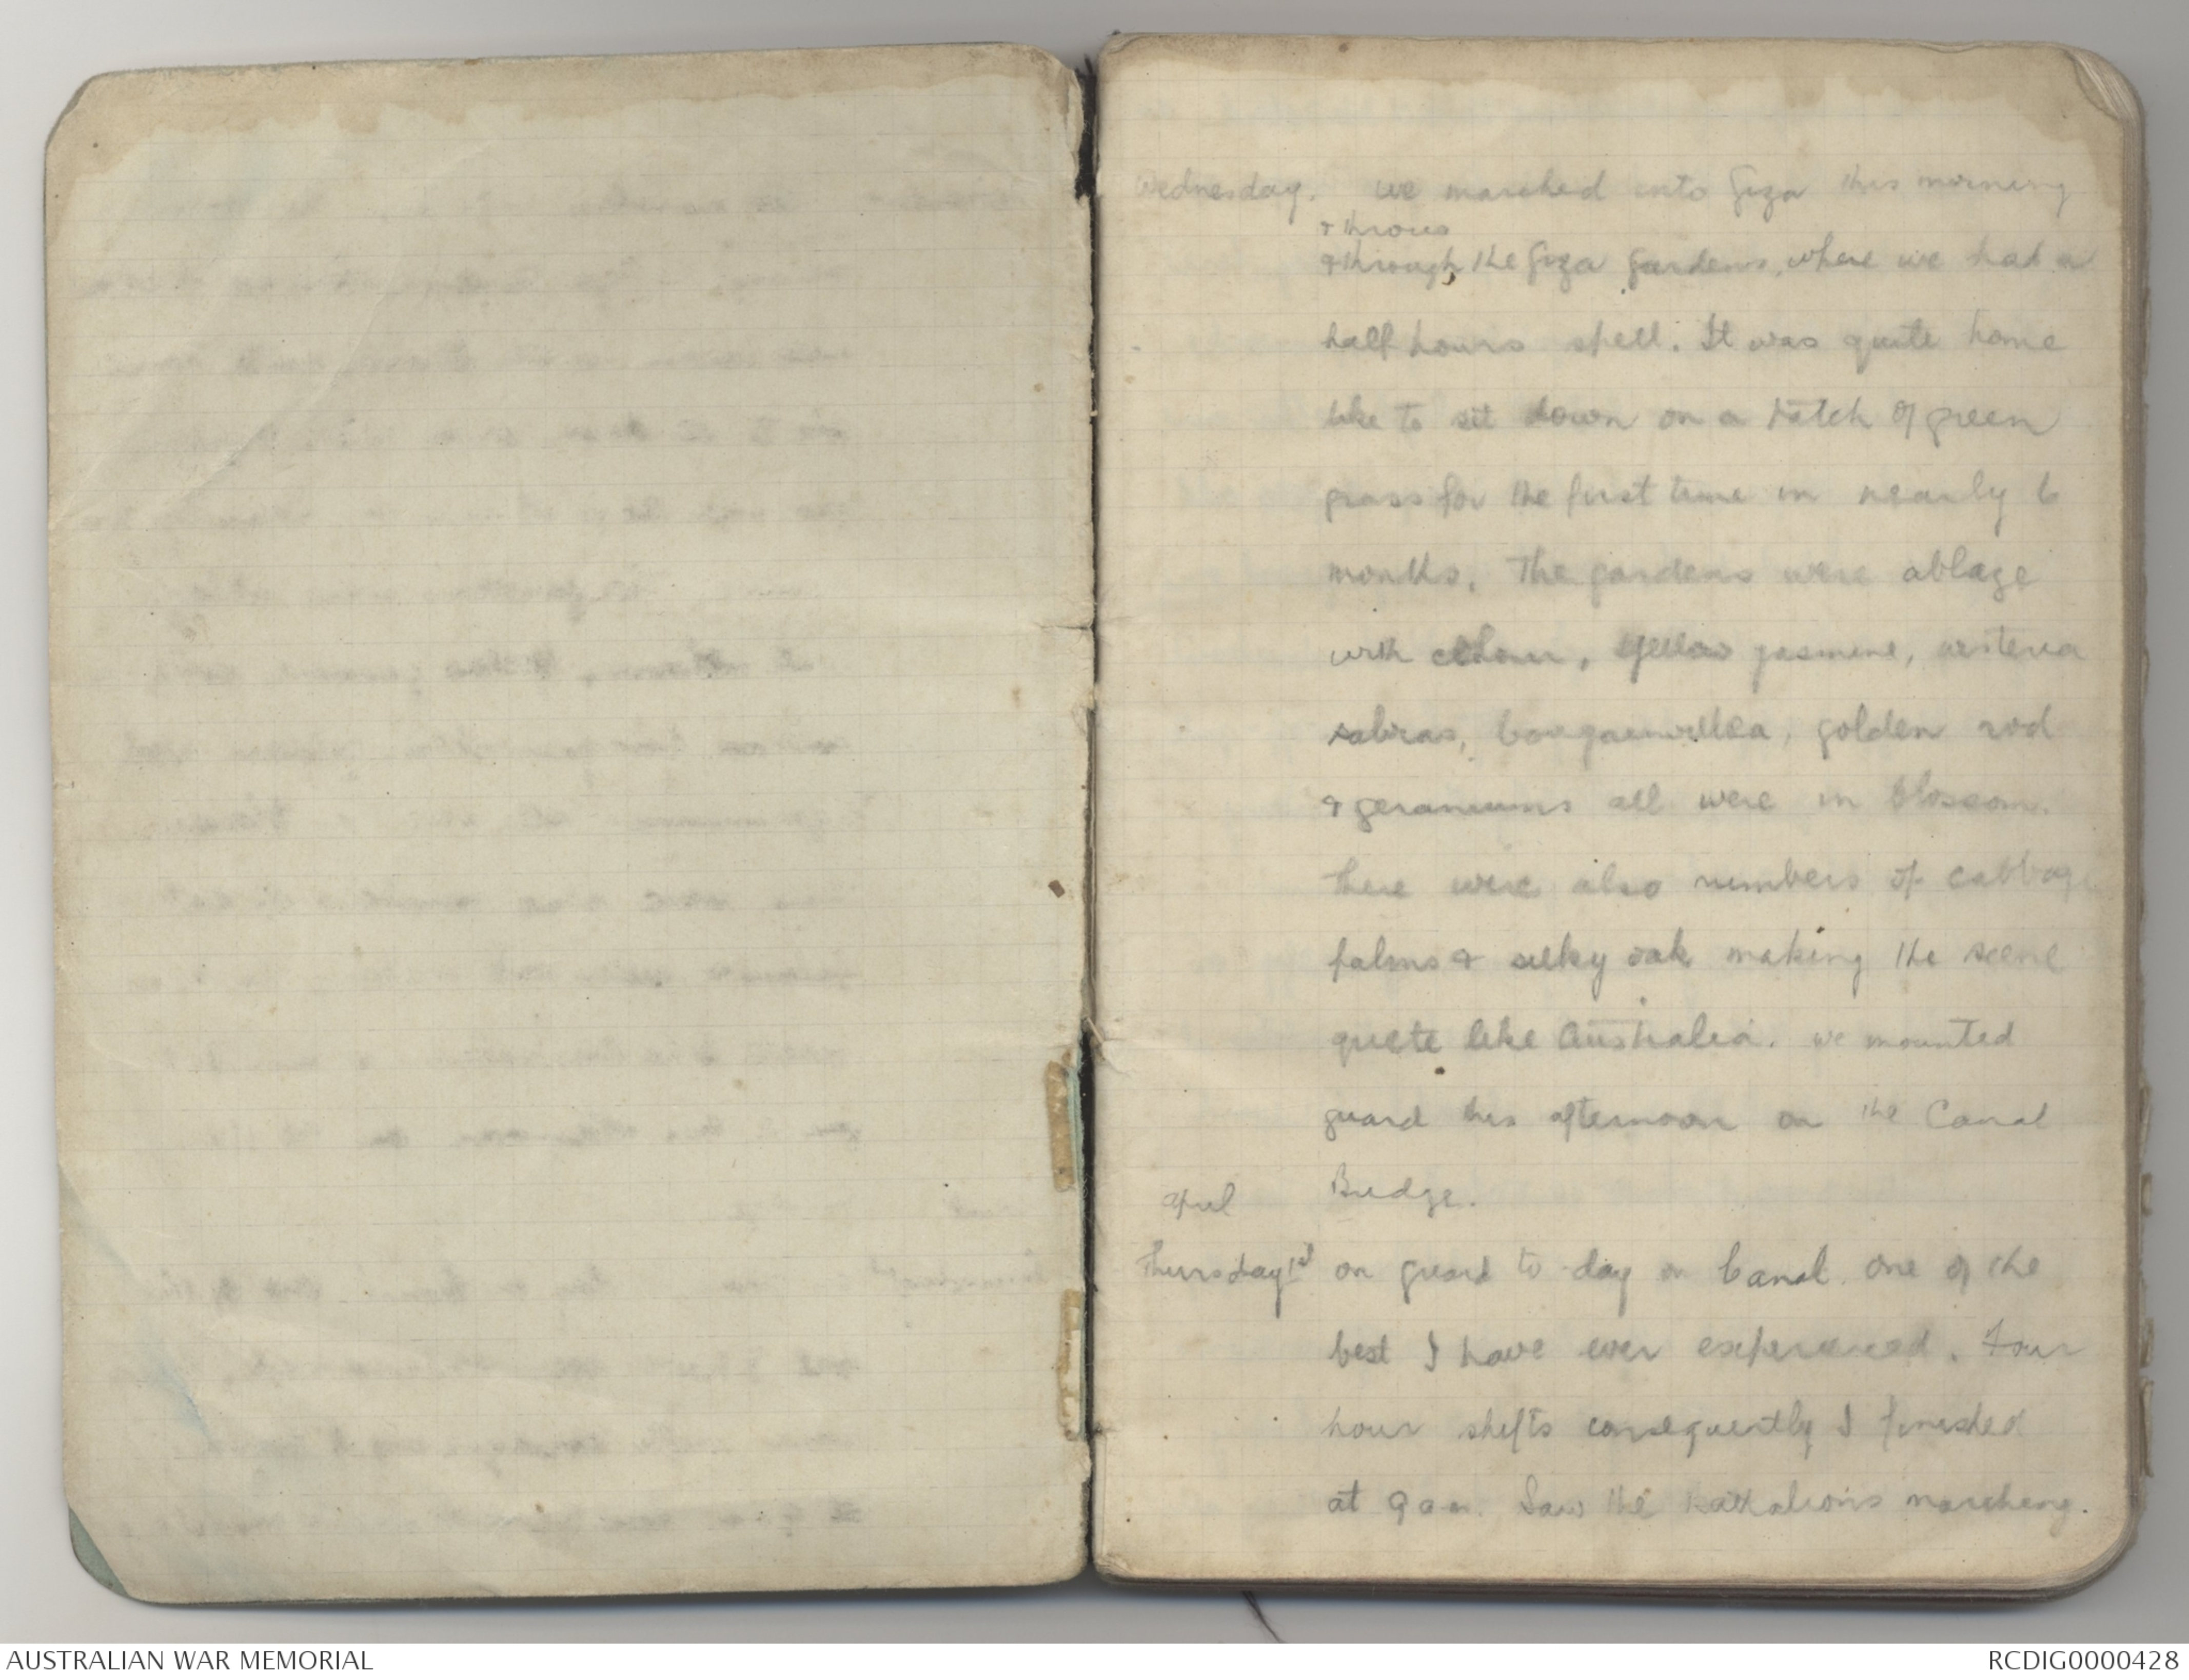 Wednesday. we marched into Giza this morning
& throu
& through the Giza Gardens, where we had a
half hours spell. It was quite home
like to sit down on a patch of green
grass for the first time in nearly 6
months. The gardens were ablaze
with colour, yellow jasmine, wisteria
salvias, bougainvillea, golden rod
& geraniums all were in blossom.
There were also numbers of cabbage
palms & silky oak making the scene
quite like Australia. we mounted
guard this afternoon on the Canal
Bridge.
April
Thursday 1st on guard to day on Canal. one of the
best I have ever experienced. Four
hour shifts consequently I finished
at 9 am. Saw the battalions marching.
AUSTRALIAN WAR MEMORIAL
RCDIG0000428